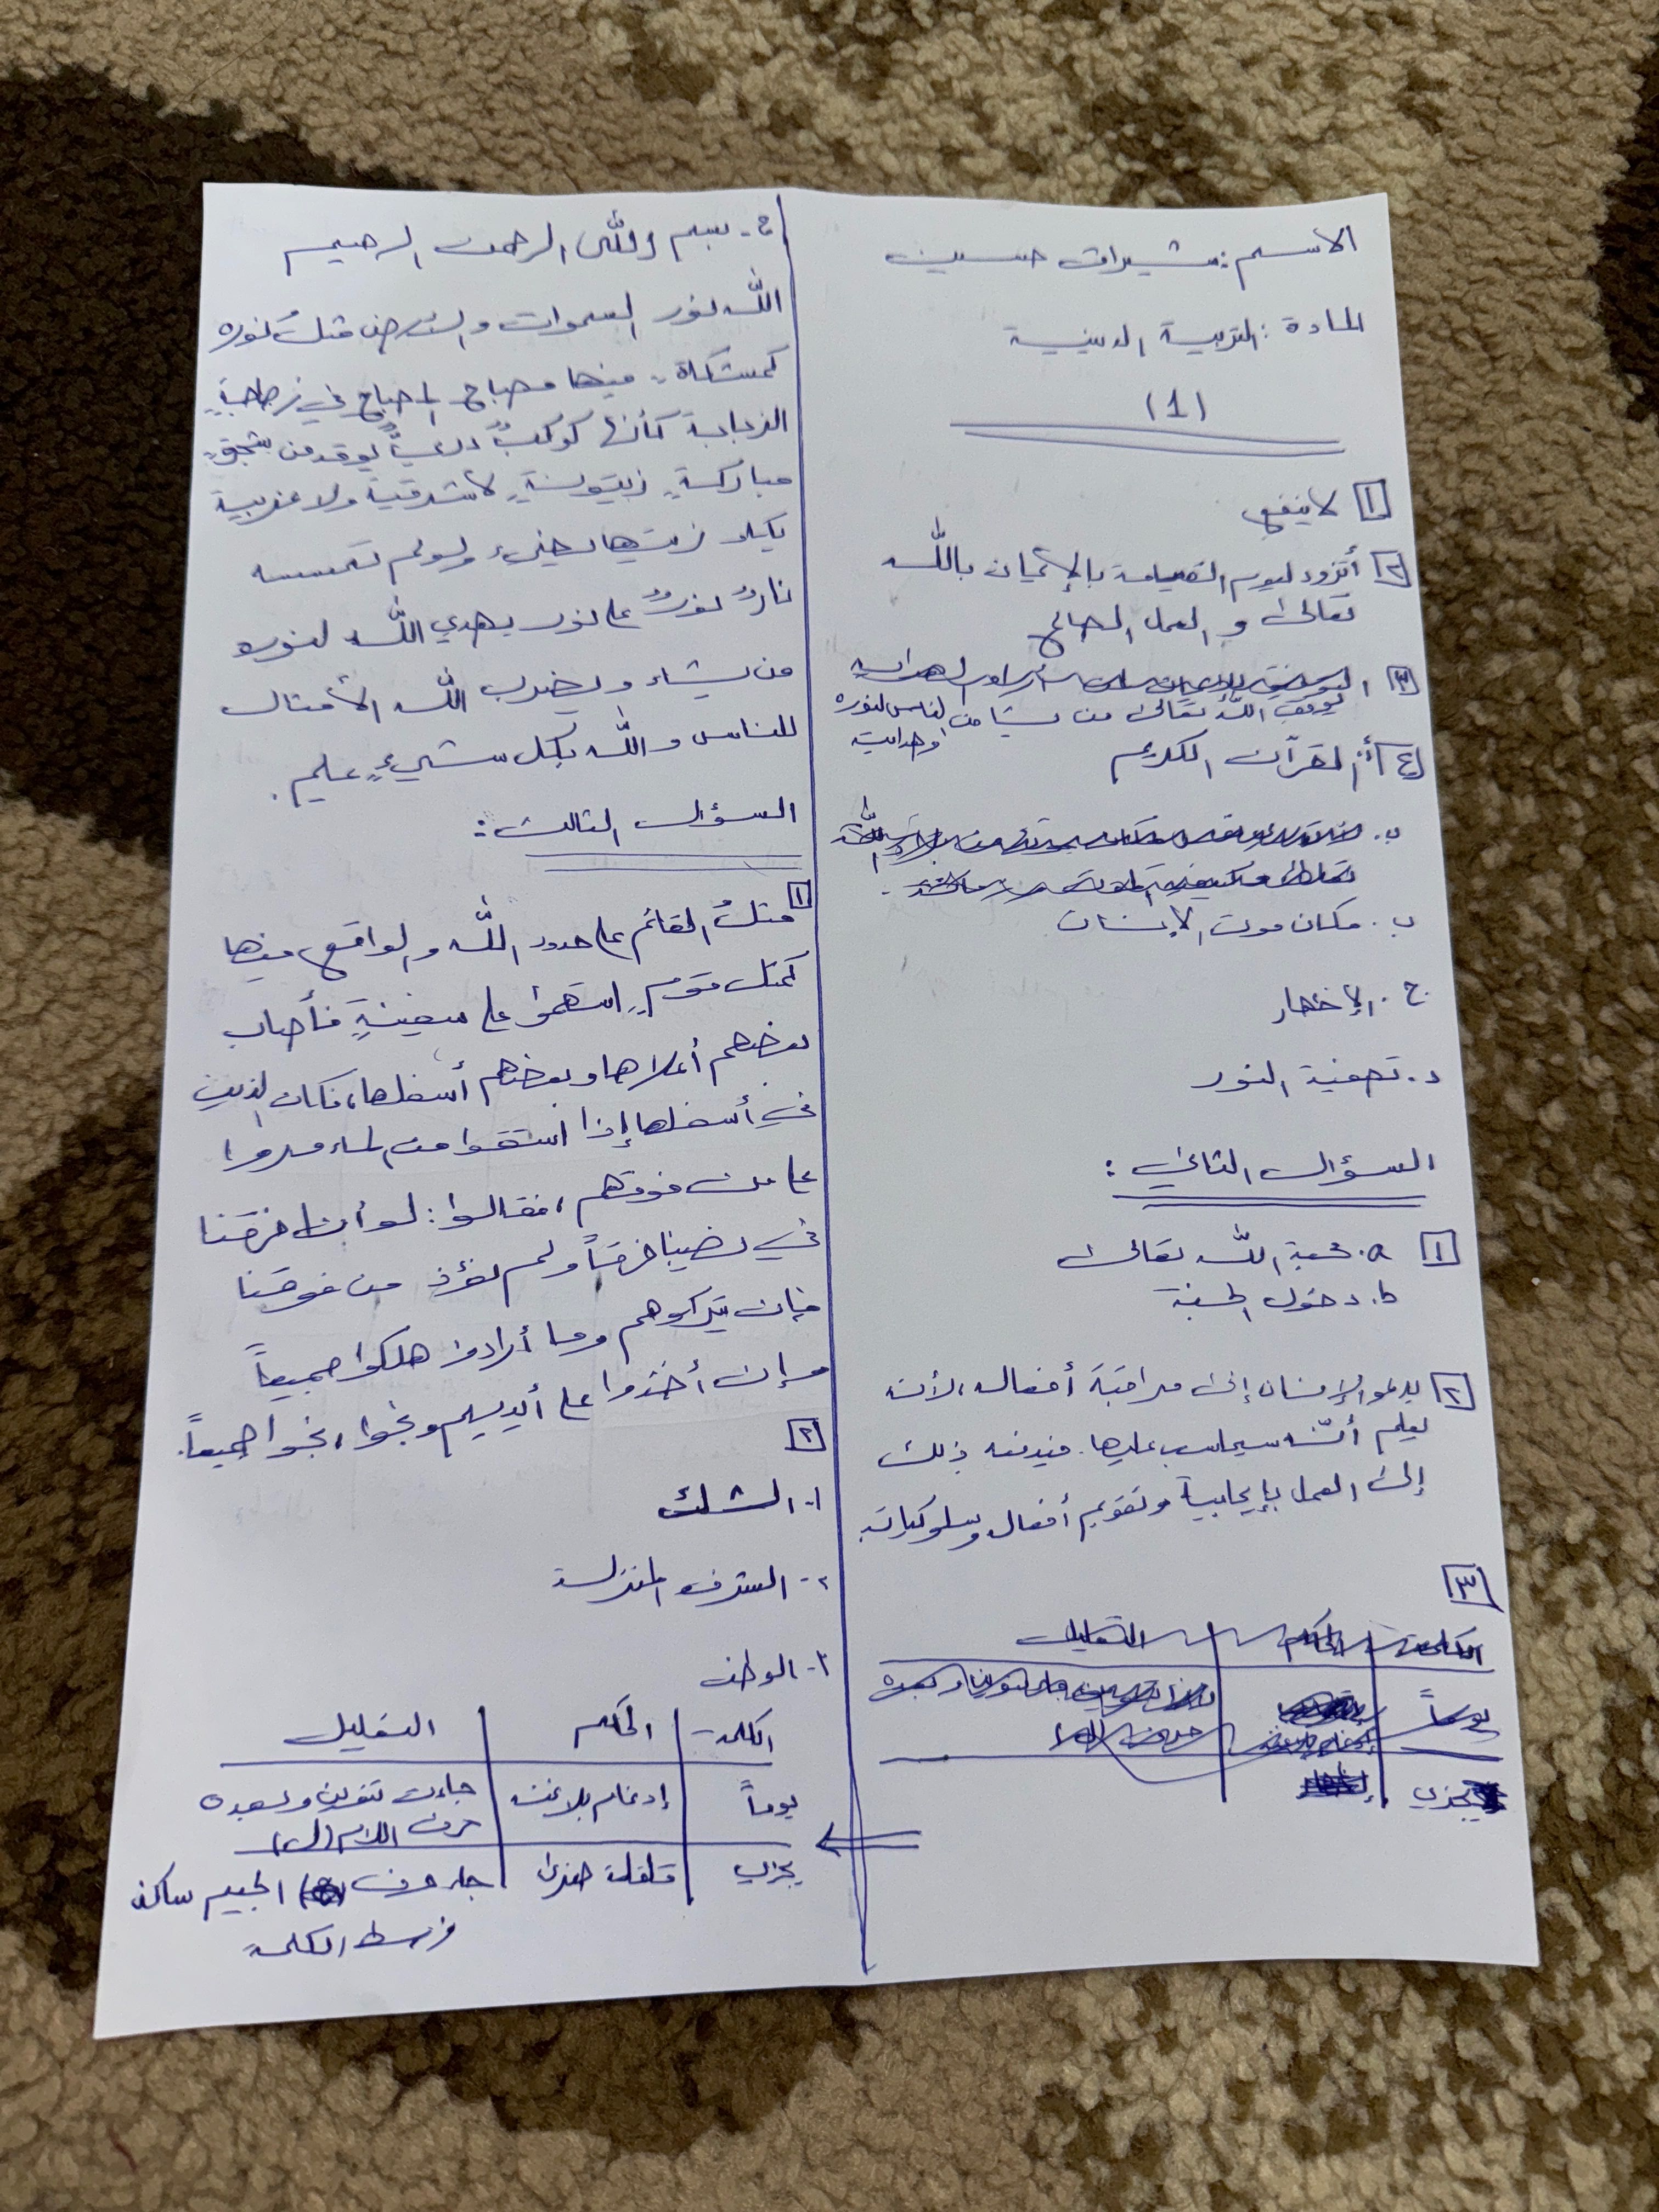 الاسم: شيرات حسين
المادة: التربية الدينية
(1)
١ لا ينفع
٢ أتزود ليوم القيامة بالإيمان بالله
تعالى و العمل الصالح
٣
يوفق الله تعالى من يشا من الناس لنوره
وهدايته
٤ أ. القرآن الكريم
ب. مكان موت الإنسان
ج. الإظهار
د. تصفية النور
السؤال الثاني:
١ a. محبة الله تعالى
b. دخول الجنة
٢ يدعو الإنسان إلى مراقبة أفعاله، لأنه
يعلم أنّه سيحاسب عليها. فيدفعه ذلك
إلى العمل بإيجابية وتقويم أفعاله وسلوكياته
٣
الكلمة الحكم التعليل
يوماً
يجزي
٥- بسم الله الرحمن الرحيم
الله نور السموات والأرض مثل نوره
كمشكاة فيها مصباح المصباح في زجاجةٍ
الزجاجة كأنها كوكبٌ دريٌّ يوقد من شجرةٍ
مباركةٍ زيتونةٍ لا شرقية ولا غربية
يكاد زيتها يضيء ولو لم تمسسه
نارٌ نورٌ على نور يهدي الله لنوره
من يشاء ويضرب الله الأمثال
للناس والله بكل شيءٍ عليم.
السؤال الثالث:
١ مثلُ القائم على حدود الله والواقع فيها
كمثل قومٍ استهموا على سفينةٍ فأصاب
بعضهم أعلاها وبعضهم أسفلها، فكان الذين
في أسفلها إذا استقوا من الماء مروا
على من فوقهم، فقالوا: لو أنا خرقنا
في نصيبنا خرقاً ولم نؤذ من فوقنا
فإن يتركوهم وما أرادوا هلكوا جميعاً
وإن أخذوا على أيديهم ونجوا، نجوا جميعاً.
٢
١- الشك
٢- الشرف المنزلة
٣- الوطن
الكلمة الحكم التعليل
يوماً إدغام بلا غنة جاءت تنوين وبعده
حرف اللام (ل)
يجزي قلقلة صغرى جاء حرف الجيم ساكن
في وسط الكلمة